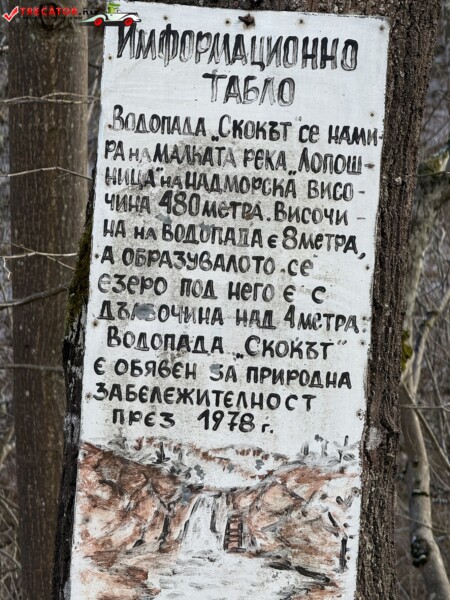 TRECATOR.RU
ИМФОРМАЦИОННО
ТАБЛО
ВОДОПАДА „СКОКЪТ" СЕ НАМИ-
РА НА МАЛКАТА РЕКА „ЛОПОШ-
НИЦА" НА НАДМОРСКА ВИСО-
ЧИНА 480 МЕТРА. ВИСОЧИ-
НА НА ВОДОПАДА Е 8 МЕТРА,
А ОБРАЗУВАЛОТО СЕ
ЕЗЕРО ПОД НЕГО Е С
ДЪЛБОЧИНА НАД 4 МЕТРА.
ВОДОПАДА „СКОКЪТ"
Е ОБЯВЕН ЗА ПРИРОДНА
ЗАБЕЛЕЖИТЕЛНОСТ
ПРЕЗ 1978 г.